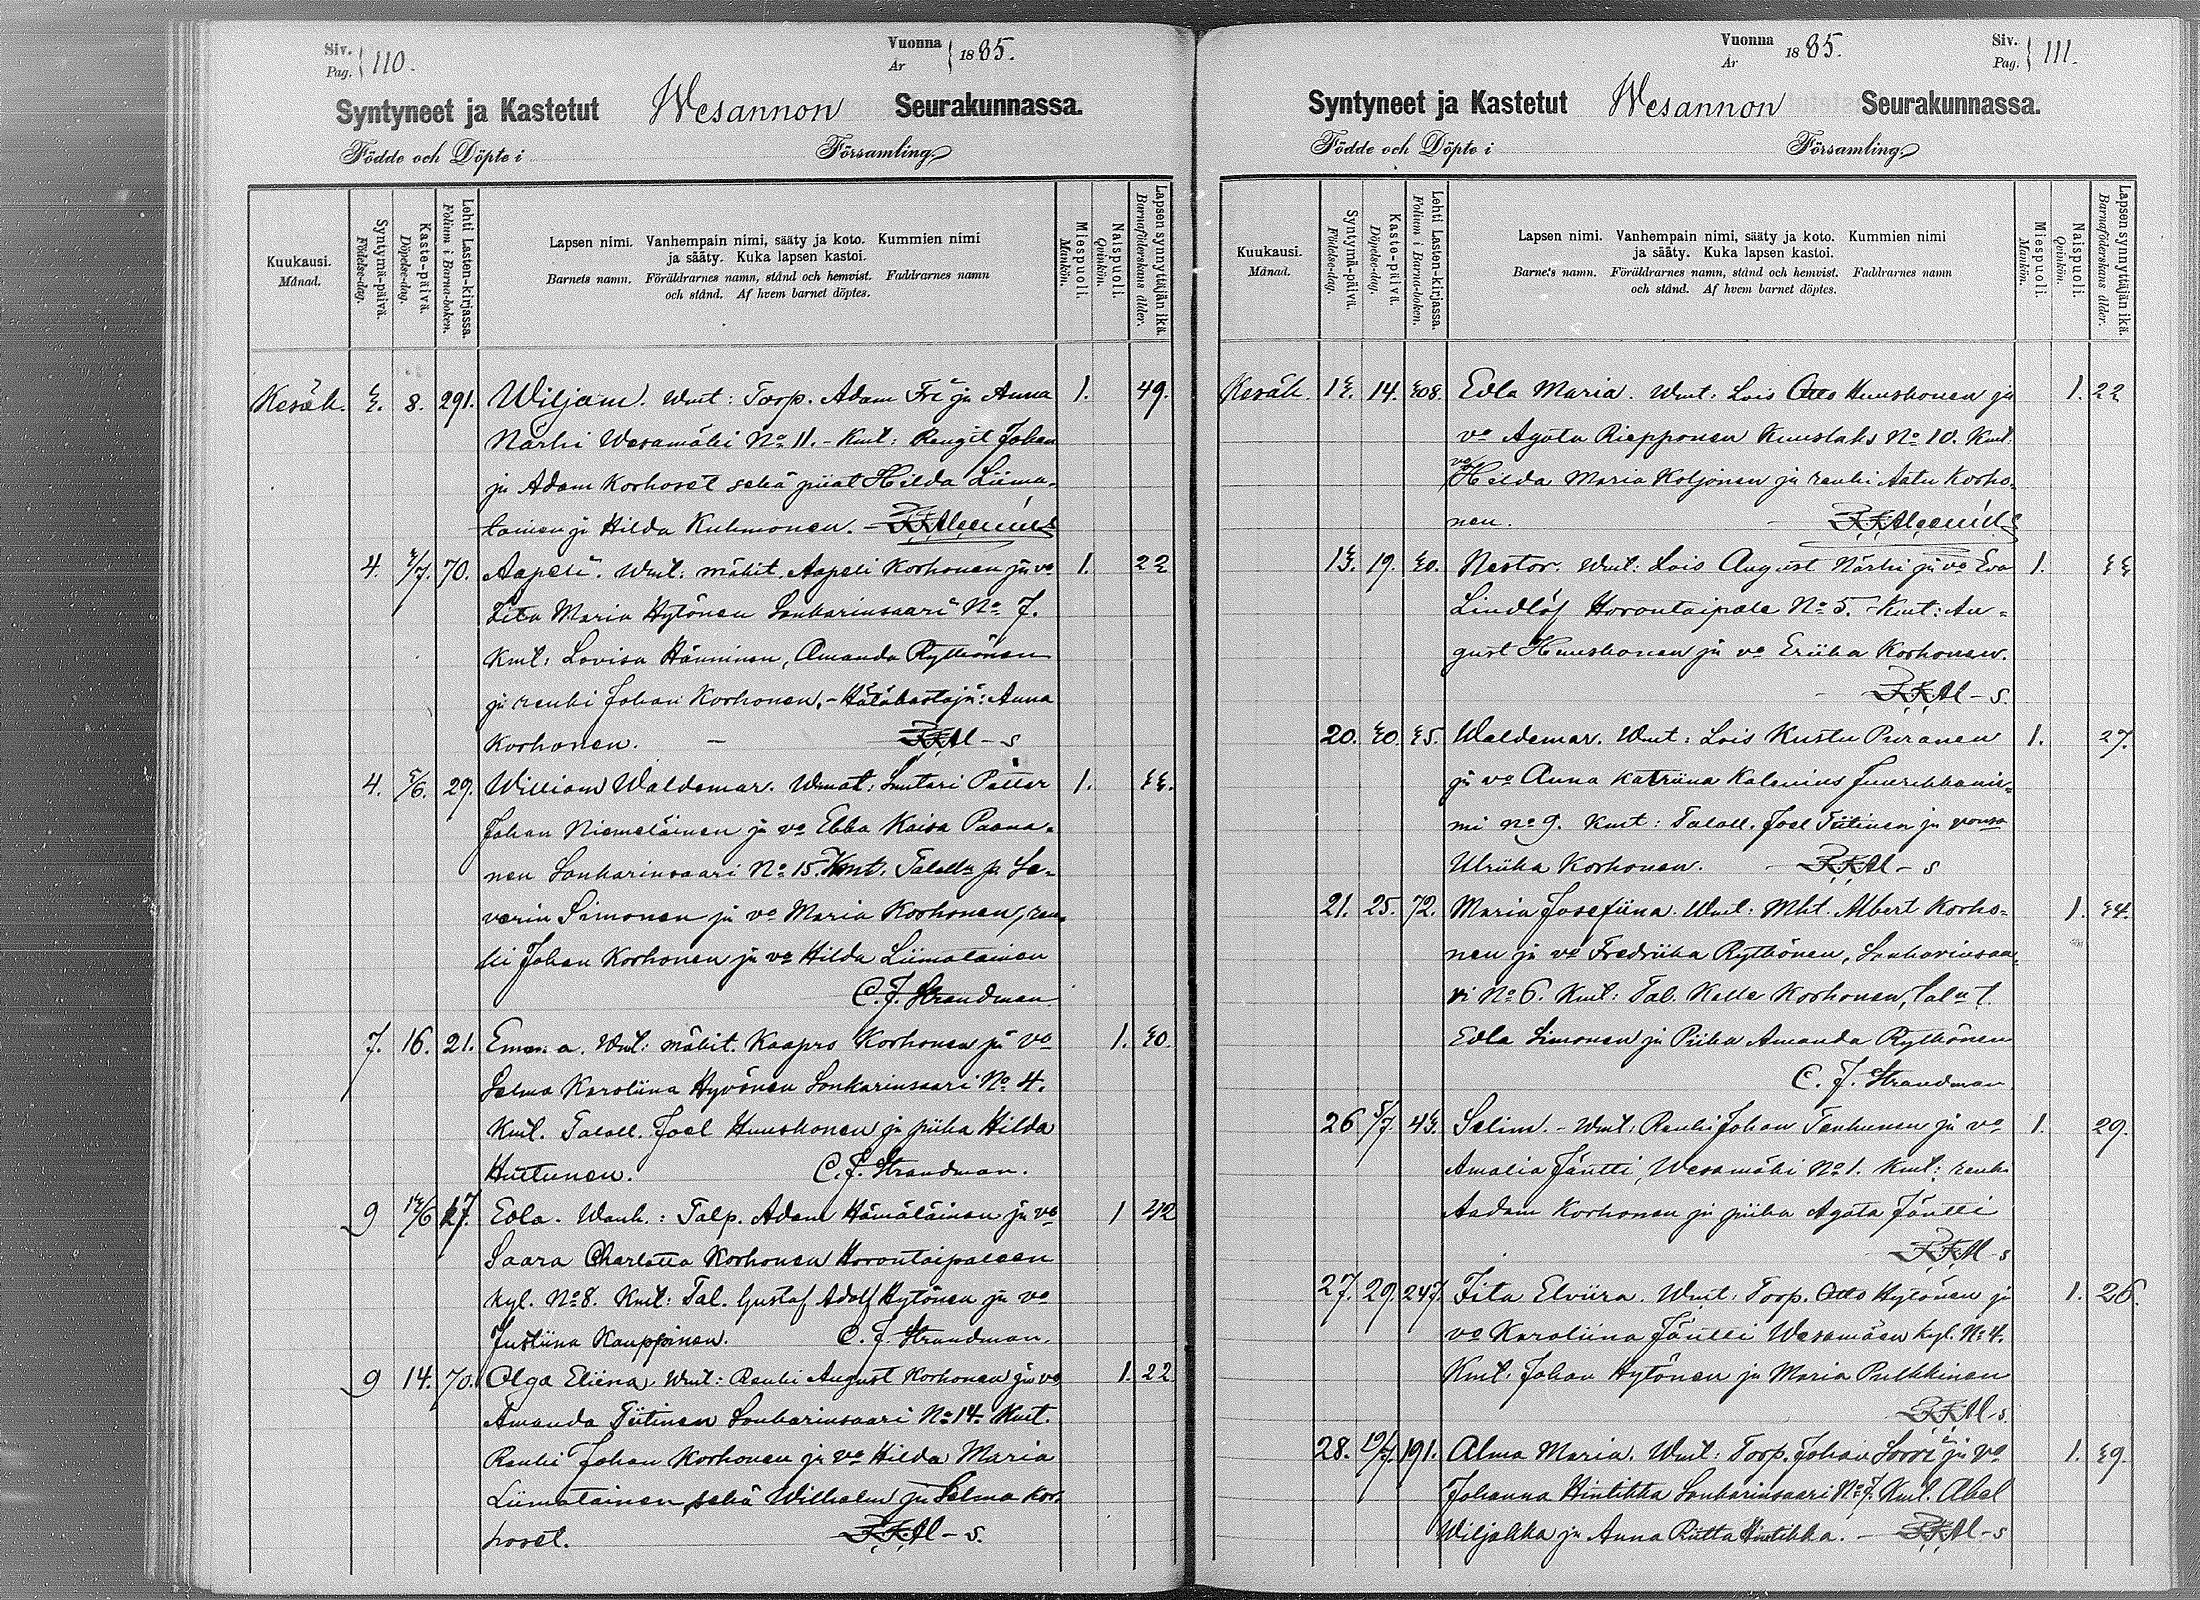 Siv. Pag. 110. Vuonna År 1885.
Syntyneet ja Kastetut Wesannon Seurakunnassa.
Födde och Döpte i Församling.
Kuukausi. Månad.
Syntymä-päivä. Födelse-dag.
Kaste-päivä. Döpelse-dag.
Lehti Lasten-kirjassa. Folium i Barna-boken.
Lapsen nimi. Vanhempain nimi, sääty ja koto. Kummien nimi
ja sääty. Kuka lapsen kastoi.
Barnets namn. Föräldrarnes namn, stånd och hemvist. Faddrarnes namn
och stånd. Af hvem barnet döptes.
Miespuoli. Mankön.
Naispuoli. Qvinkön.
Lapsen synnyttäjän ikä. Barnaföderskans ålder.
Kesäk. 3. 8. 291. Wiljam. Wmt: Torp. Adam Fri ja Anna 1. 49.
Närhi Wesamäki No 11. - Kmt: Rengit Johan
ja Adam Korhoset sekä piiat Hilda Liima-
tainen ja Hilda Kuhmonen.
4. 3/7. 70. Aapeli. Wmt: mäkit. Aapeli Korhonen ja vo 1. 22
Fita Maria Hytönen Sonkarinsaari No 7.
Kmt: Lovisa Hänninen, Amanda Rytkönen
ja renki Johan Korhonen. - Hätäkastaja: Anna
Korhonen. - - s
4. 5/6. 29. William Waldemar. Wmat: Suutari Petter 1. 33.
Johan Niemeläinen ja vo Ebba Kaisa Paana-
nen Sonkarinsaari No 15. Kmt. Taloll. ja Se-
verin Simonen ja vo Maria Korhonen, ren-
ki Johan Korhonen ja vo Hilda Liimatainen
C. J. Strandman
7. 16. 21. Emma. Wmt: mäkit. Kaapro Korhonen ja vo 1. 30.
Selma Karoliina Hyvönen Sonkarinsaari No 4.
Kmt. Taloll. Joel Huuskonen ja piika Hilda
Huttunen. C. J. Strandman.
9 13/6 17. Edla. Wanh.: Talp. Adam Hämäläinen ja vo 1 42
Saara Charlotta Korhonen Horontaipaleen
kyl. No 8. Kmt: Tal. Gustaf Adolf Hytönen ja vo
Justiina Kauppinen. C. J. Strandman.
9 14. 70. Olga Eliina. Wmt: Renki August Korhonen ja vo 1. 22
Amanda Tiitinen Sonkarinsaari No 14. Kmt.
Renki Johan Korhonen ja vo Hilda Maria
Liimatainen sekä Wilhelm ja Selma Kor-
hoset. - s.
Vuonna År 1885. Siv. Pag. 111.
Syntyneet ja Kastetut Wesannon Seurakunnassa.
Födde och Döpte i Församling.
Kuukausi. Månad.
Syntymä-päivä. Födelse-dag.
Kaste-päivä. Döpelse-dag.
Lehti Lasten-kirjassa. Folium i Barna-boken.
Lapsen nimi. Vanhempain nimi, sääty ja koto. Kummien nimi
ja sääty. Kuka lapsen kastoi.
Barnets namn. Föräldrarnes namn, stånd och hemvist. Faddrarnes namn
och stånd. Af hvem barnet döptes.
Miespuoli. Mankön.
Naispuoli. Qvinkön.
Lapsen synnyttäjän ikä. Barnaföderskans ålder.
Kesäk. 13. 14. 308. Edla Maria. Wmt: Lois Otto Huuskonen ja 1. 22
vo Agata Riepponen Kuuslaks No 10. Kmt.
vo Hilda Maria Koljonen ja renki Aatu Korho-
nen.
13. 19. 30. Nestor. Wmt: Lois August Närhi ja vo Eva 1. 33
Lindlöf Horontaipale No 5. - Kmt: Au-
gust Huuskonen ja vo Eriika Korhonen.
- s.
20. 30. 35. Waldemar. Wmt: Lois Kustu Puranen 1. 27.
ja vo Anna Katriina Kalenius Juurikkanie-
mi no 9. Kmt: Taloll. Joel Tiitinen ja vonsa
Ulriika Korhonen. - s
21. 25. 72. Maria Josefiina. Wmt. Mkt. Albert Korho- 1. 34.
nen ja vo Fredriika Rytkönen, Sonkarinsaa-
ri No 6. Kmt: Tal. Kalle Korhonen, tal. t.
Edla Simonen ja Piika Amanda Rytkönen
C. J. Strandman
26 5/7. 43. Selim. - Wmt: Renki Johan Tenhunen ja vo 1. 29.
Amalia Jäntti, Wesamäki No 1. Kmt: renk.
Aadam Korhonen ja piika Agata Jäntti
- s
27. 29. 247. Fita Elviira. Wmt: Torp. Otto Hytönen ja 1. 26.
vo Karoliina Jäntti Wesamäen kyl. No 4.
Kmt. Johan Hytönen ja Maria Pulkkinen
- s.
28. 191. Alma Maria. Wmt: Torp. Johan Sorri ja vo 1. 39.
Johanna Hintikka Sonkarinsaari No 7. Kmt. Abel
Wiljakka ja Anna Riitta Hintikka. - - s